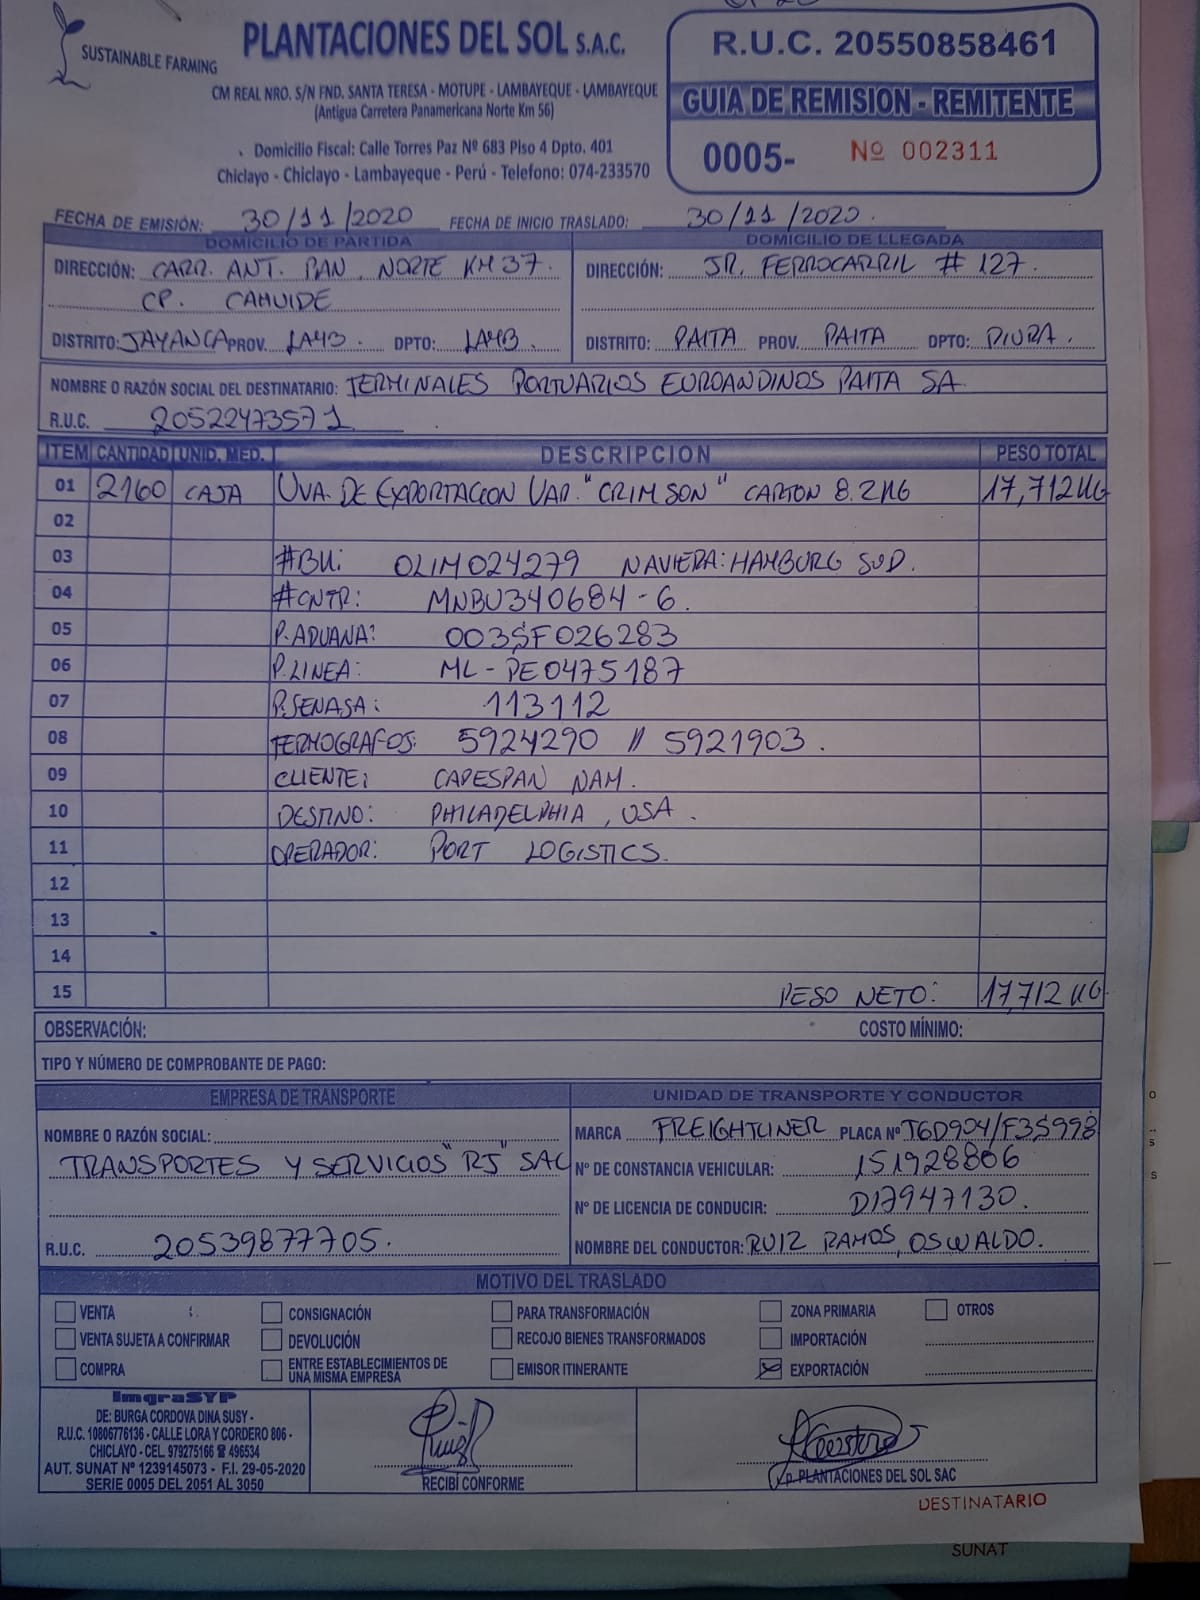 SUSTAINABLE FARMING
PLANTACIONES DEL SOL S.A.C.
CM REAL NRO. S/N FND. SANTA TERESA - MOTUPE - LAMBAYEQUE - LAMBAYEQUE
(Antigua Carretera Panamericana Norte Km 56)
Domicilio Fiscal: Calle Torres Paz Nº 683 Piso 4 Dpto. 401
Chiclayo - Chiclayo - Lambayeque - Perú - Telefono: 074-233570
R.U.C. 20550858461
GUIA DE REMISION - REMITENTE
0005- Nº 002311
FECHA DE EMISIÓN: 30/11/2020 FECHA DE INICIO TRASLADO: 30/11/2020.
DOMICILIO DE PARTIDA DOMICILIO DE LLEGADA
DIRECCIÓN: CARR. ANT. PAN. NORTE KM 37. DIRECCIÓN: JR. FERROCARRIL # 127.
CP. CAHUIDE
DISTRITO: JAYANCA PROV. LAMB. DPTO: LAMB. DISTRITO: PAITA PROV. PAITA DPTO: PIURA.
NOMBRE O RAZÓN SOCIAL DEL DESTINATARIO: TERMINALES PORTUARIOS EUROANDINOS PAITA SA
R.U.C. 20522473571
ITEM CANTIDAD UNID. MED. DESCRIPCION PESO TOTAL
01 2160 CAJA UVA DE EXPORTACION VAR. "CRIMSON" CARTON 8.2KG 17,712 KG
02
03 #BK: OLIM024279 NAVIERA: HAMBURG SUD.
04 #CNTR: MNBU340684-6.
05 P.ADUANA: 003SF026283
06 P.LINEA: ML-PE0475187
07 P.SENASA: 113112
08 TERMOGRAFOS: 5924290 // 5921903.
09 CLIENTE: CAPESPAN NAM.
10 DESTINO: PHILADELPHIA, USA.
11 OPERADOR: PORT LOGISTICS.
12
13
14
15 PESO NETO: 17,712 KG
OBSERVACIÓN: COSTO MÍNIMO:
TIPO Y NÚMERO DE COMPROBANTE DE PAGO:
EMPRESA DE TRANSPORTE UNIDAD DE TRANSPORTE Y CONDUCTOR
NOMBRE O RAZÓN SOCIAL: MARCA FREIGHTLINER PLACA Nº T6D904/F3S998
TRANSPORTES Y SERVICIOS "RJ" SAC Nº DE CONSTANCIA VEHICULAR: 151928806
Nº DE LICENCIA DE CONDUCIR: D17947130.
R.U.C. 20539877705. NOMBRE DEL CONDUCTOR: RUIZ RAMOS, OSWALDO.
MOTIVO DEL TRASLADO
VENTA CONSIGNACIÓN PARA TRANSFORMACIÓN ZONA PRIMARIA OTROS
VENTA SUJETA A CONFIRMAR DEVOLUCIÓN RECOJO BIENES TRANSFORMADOS IMPORTACIÓN
COMPRA ENTRE ESTABLECIMIENTOS DE UNA MISMA EMPRESA EMISOR ITINERANTE EXPORTACIÓN
ImgraSYP
DE: BURGA CORDOVA DINA SUSY -
R.U.C. 10806776136 - CALLE LORA Y CORDERO 806 -
CHICLAYO - CEL. 979275166 ☎ 496534
AUT. SUNAT Nº 1239145073 - F.I. 29-05-2020
SERIE 0005 DEL 2051 AL 3050
RECIBÍ CONFORME
p. PLANTACIONES DEL SOL SAC
DESTINATARIO
SUNAT